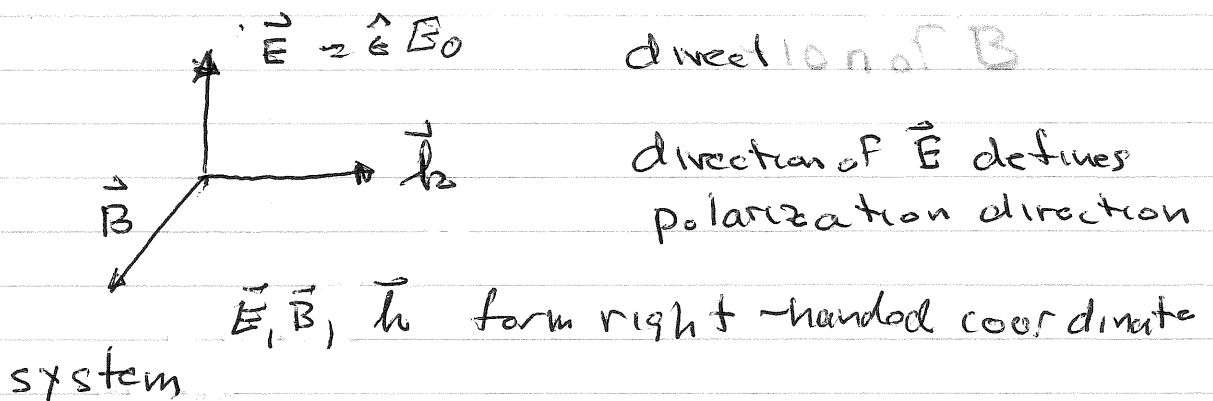 E⃗ = ε̂ E₀
direction of B
direction of E⃗ defines
polarization direction
k⃗
B⃗
E⃗, B⃗, k⃗ form right-handed coordinate
system